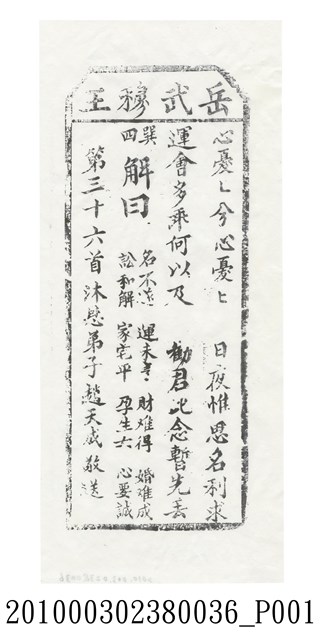 岳武穆王
心憂〻兮心憂〻 日夜惟思名利求
運會多乖何以及 勸君此念暫先丟
巽四 解曰
名不遂 運未 財難得 婚難成
訟和解 家宅平 孕生六 心要誠
第三十六首沐恩弟子趙天成敬送
201000302380036_P001